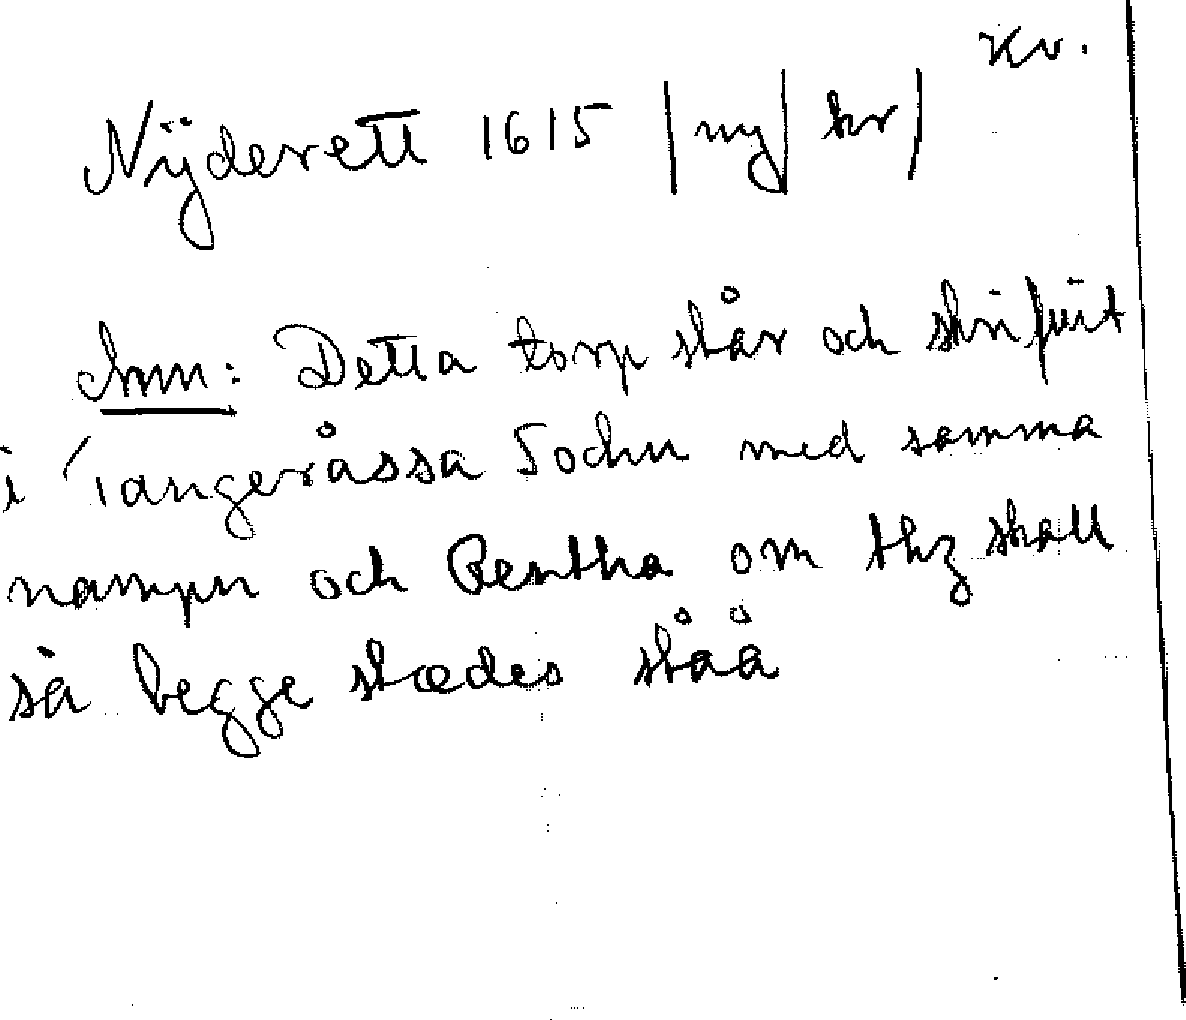 Kv.
Nÿderett 1615 | ny | kr |
Anm: Detta torp står och skrifuit
i Tangeråssa Sochn med samma
nampn och Rentha om thz skall
så begge stædes ståå